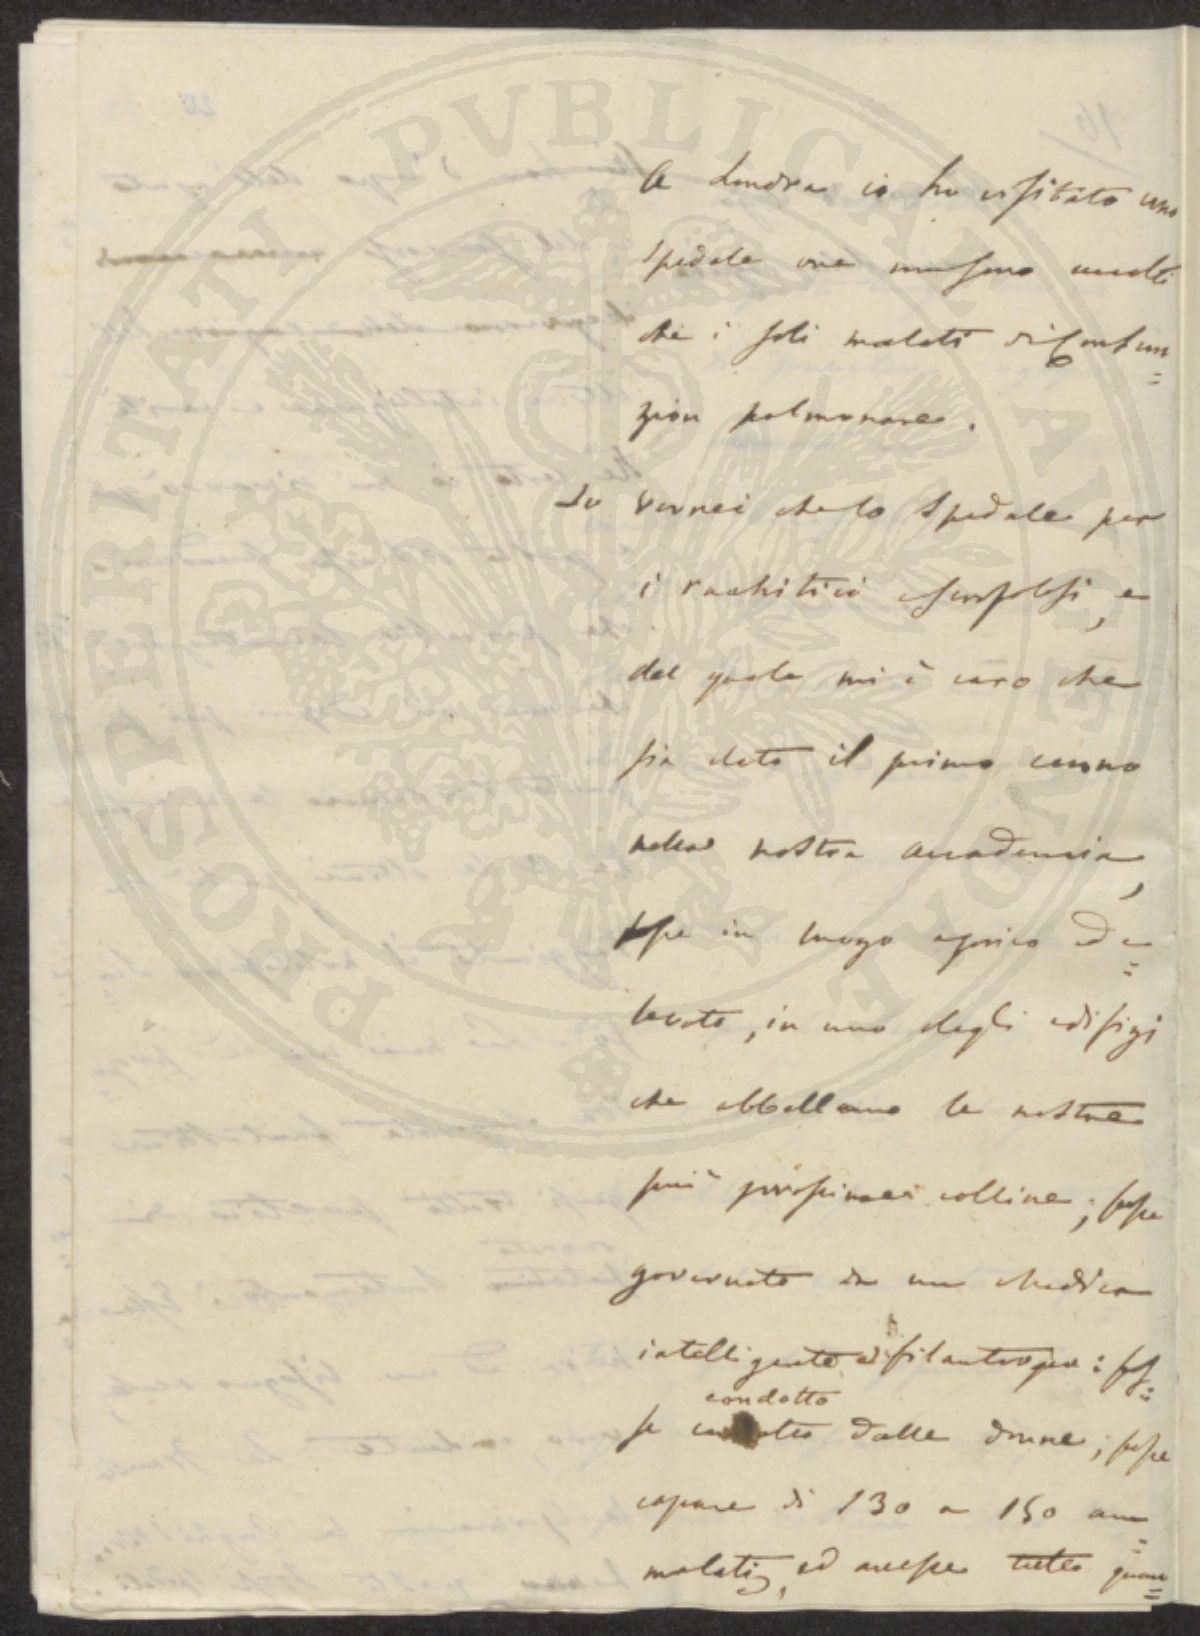 A Londra io ho visitato uno
spedale ove non sono accolti
che i soli malati di Consun=
zion polmonare.
Io vorrei che lo Spedale per
i rachitici e scrofolosi, e
del quale mi è caro che
sia dato il primo cenno
nella nostra accademia,
fosse in luogo aprico ed e=
levato, in uno degli edifizj
che abbellano le nostre
più prossime colline; fosse
governato da un Medico
intelligente e filantropo: fos=
condotto
se dalle donne; fosse
capace di 130 a 150 am=
malati, ed avesse tutto quan=
PROSPERITATI PVBLICAE AVGENDAE